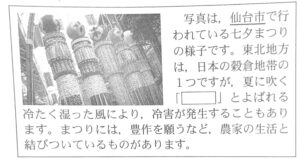 写真は，仙台市で行
われている七夕まつり
の様子です。東北地方
は，日本の穀倉地帯の
１つですが，夏に吹く
「　　　」とよばれる
冷たく湿った風により，冷害が発生することもあり
ます。まつりには，豊作を願うなど，農家の生活と
結びついているものがあります。